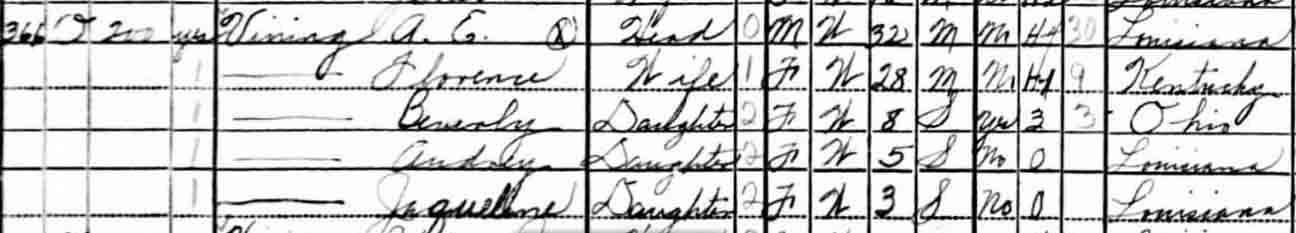 366 O 200 yes Vining A. E. ⓧ Head 0 M W 32 M No H4 30 Louisiana
1 —— Florence Wife 1 F W 28 M No H4 9 Kentucky
1 —— Beverly Daughter 2 F W 8 S Yes 3 3 Ohio
1 —— Audrey Daughter 2 F W 5 S No 0 Louisiana
1 —— Jaqueline Daughter 2 F W 3 S No 0 Louisiana